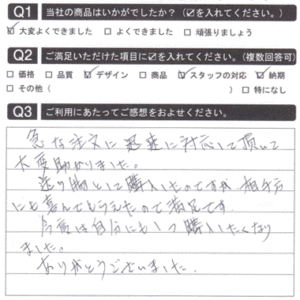 Q1 当社の商品はいかがでしたか？（☑を入れてください。）
☑大変よくできました □よくできました □頑張りましょう
Q2 ご満足いただけた項目に☑を入れてください。（複数回答可）
□価格 □品質 ☑デザイン □商品 ☑スタッフの対応 ☑納期
□その他（ ）□特になし
Q3 ご利用にあたってご感想をおよせください。
急な注文に迅速に対応して頂いて
大変助かりました。
送り物として購入したのですが 相手方
にも喜んでもらえたので満足です。
今度は自分にも1つ購入したくなり
ました。
ありがとうございました。